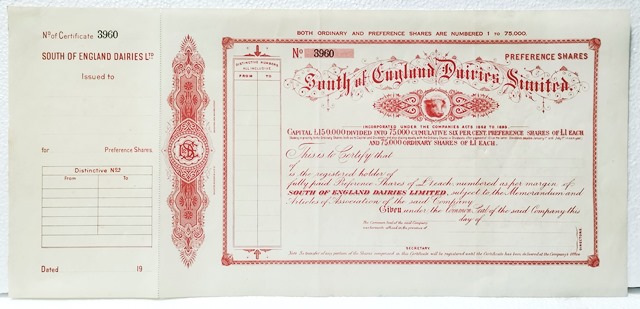 Nº of Certificate 3960
SOUTH OF ENGLAND DAIRIES LTD
Issued to
for Preference Shares.
Distinctive Nos
From To
Dated 19
BOTH ORDINARY AND PREFERENCE SHARES ARE NUMBERED 1 TO 75,000.
Nº 3960 PREFERENCE SHARES
DISTINCTIVE NUMBERS
ALL INCLUSIVE
FROM TO
South of England Dairies Limited.
INCORPORATED UNDER THE COMPANIES ACTS 1862 TO 1898.
CAPITAL £150,000 DIVIDED INTO 75,000 CUMULATIVE SIX PER CENT. PREFERENCE SHARES OF £1 EACH
AND 75,000 ORDINARY SHARES OF £1 EACH.
This is to Certify that
is the registered holder of
fully paid Preference Shares of £1 each, numbered as per margin of
SOUTH OF ENGLAND DAIRIES LIMITED, subject to the Memorandum and
Articles of Association of the said Company.
Given under the Common Seal of the said Company this
day of
The Common Seal of the said Company
was hereunto affixed in the presence of
DIRECTORS
SECRETARY